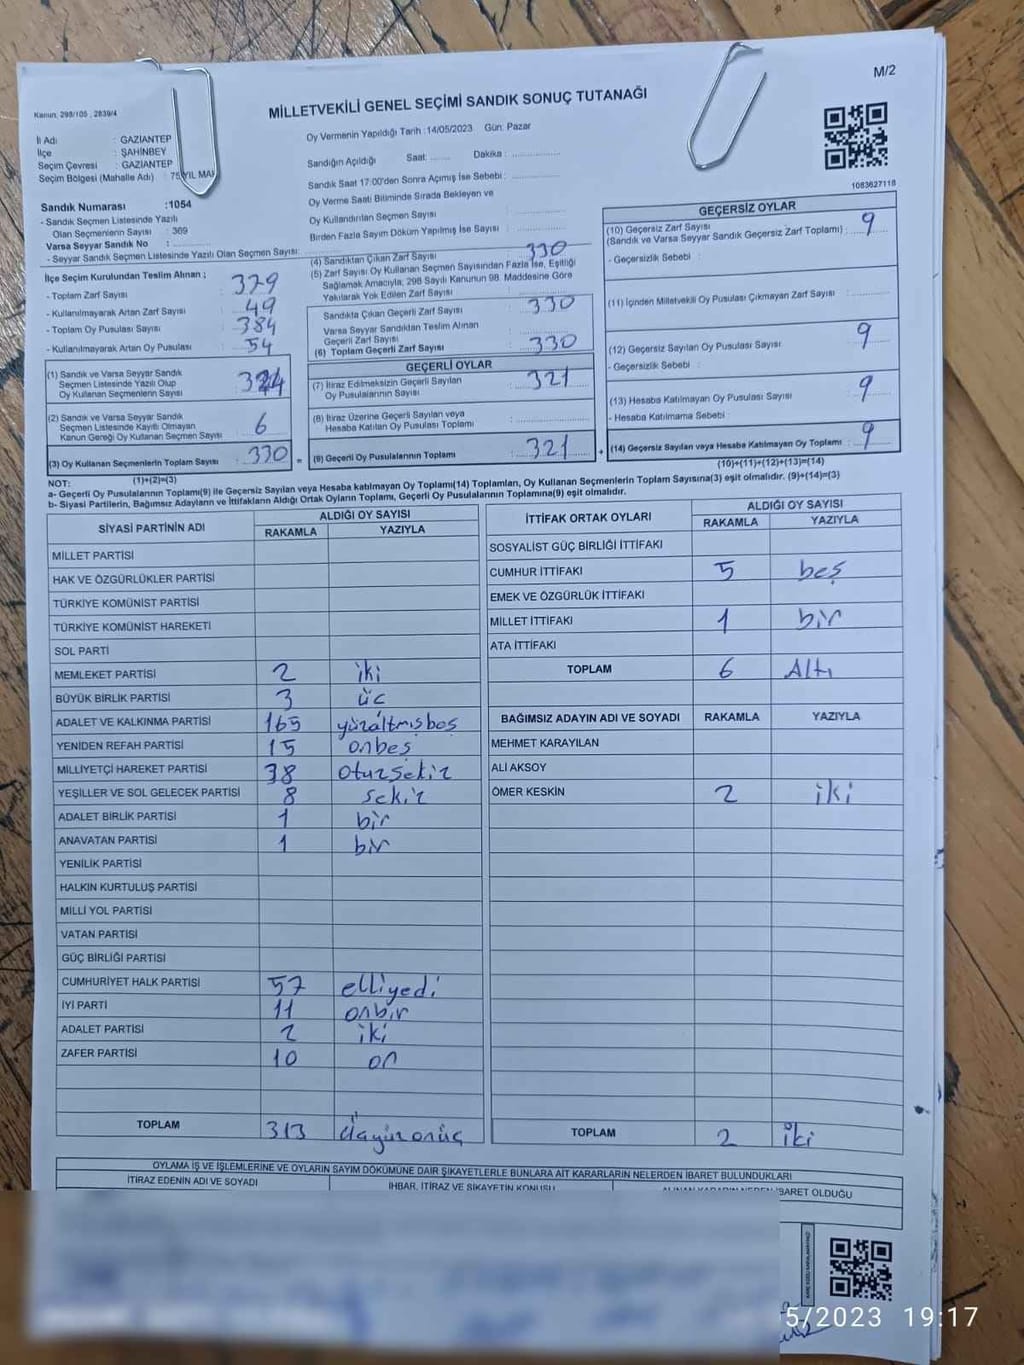 M/2
Kanun: 298/105 , 2839/4
MİLLETVEKİLİ GENEL SEÇİMİ SANDIK SONUÇ TUTANAĞI
İl Adı : GAZİANTEP
İlçe : ŞAHİNBEY
Seçim Çevresi : GAZİANTEP
Seçim Bölgesi (Mahalle Adı) : 75 YIL MAH
Sandık Numarası :1054
- Sandık Seçmen Listesinde Yazılı
Olan Seçmenlerin Sayısı : 369
Varsa Seyyar Sandık No :
- Seyyar Sandık Seçmen Listesinde Yazılı Olan Seçmen Sayısı:
Oy Vermenin Yapıldığı Tarih :14/05/2023 Gün: Pazar
Sandığın Açıldığı Saat: Dakika:
Sandık Saat 17:00'den Sonra Açımış İse Sebebi:
Oy Verme Saati Bitiminde Sırada Bekleyen ve
Oy Kullandırılan Seçmen Sayısı :
Birden Fazla Sayım Döküm Yapılmış İse Sayısı :
1083627118
İlçe Seçim Kurulundan Teslim Alınan ;
- Toplam Zarf Sayısı : 379
- Kullanılmayarak Artan Zarf Sayısı : 49
- Toplam Oy Pusulası Sayısı : 384
- Kullanılmayarak Artan Oy Pusulası : 54
(1) Sandık ve Varsa Seyyar Sandık
Seçmen Listesinde Yazılı Olup
Oy Kullanan Seçmenlerin Sayısı : 324
(2) Sandık ve Varsa Seyyar Sandık
Seçmen Listesinde Kayıtlı Olmayan
Kanun Gereği Oy Kullanan Seçmen Sayısı : 6
(3) Oy Kullanan Seçmenlerin Toplam Sayısı : 330
(1)+(2)=(3)
(4) Sandıktan Çıkan Zarf Sayısı : 330
(5) Zarf Sayısı Oy Kullanan Seçmen Sayısından Fazla İse, Eşitliği
Sağlamak Amacıyla; 298 Sayılı Kanunun 98. Maddesine Göre
Yakılarak Yok Edilen Zarf Sayısı :
Sandıkta Çıkan Geçerli Zarf Sayısı : 330
Varsa Seyyar Sandıktan Teslim Alınan
Geçerli Zarf Sayısı :
(6) Toplam Geçerli Zarf Sayısı : 330
GEÇERLİ OYLAR
(7) İtiraz Edilmeksizin Geçerli Sayılan
Oy Pusulalarının Sayısı : 321
(8) İtiraz Üzerine Geçerli Sayılan veya
Hesaba Katılan Oy Pusulası Toplamı :
= (9) Geçerli Oy Pusulalarının Toplamı : 321 +
GEÇERSİZ OYLAR
(10) Geçersiz Zarf Sayısı
(Sandık ve Varsa Seyyar Sandık Geçersiz Zarf Toplamı) : 9
- Geçersizlik Sebebi :
(11) İçinden Milletvekili Oy Pusulası Çıkmayan Zarf Sayısı :
(12) Geçersiz Sayılan Oy Pusulası Sayısı : 9
- Geçersizlik Sebebi :
(13) Hesaba Katılmayan Oy Pusulası Sayısı : 9
- Hesaba Katılmama Sebebi :
(14) Geçersiz Sayılan veya Hesaba Katılmayan Oy Toplamı : 9
(10)+(11)+(12)+(13)=(14)
NOT:
a- Geçerli Oy Pusulalarının Toplamı(9) ile Geçersiz Sayılan veya Hesaba katılmayan Oy Toplamı(14) Toplamları, Oy Kullanan Seçmenlerin Toplam Sayısına(3) eşit olmalıdır. (9)+(14)=(3)
b- Siyasi Partilerin, Bağımsız Adayların ve İttifakların Aldığı Ortak Oyların Toplamı, Geçerli Oy Pusulalarının Toplamına(9) eşit olmalıdır.
SİYASİ PARTİNİN ADI ALDIĞI OY SAYISI
RAKAMLA YAZIYLA
MİLLET PARTİSİ
HAK VE ÖZGÜRLÜKLER PARTİSİ
TÜRKİYE KOMÜNİST PARTİSİ
TÜRKİYE KOMÜNİST HAREKETİ
SOL PARTİ
MEMLEKET PARTİSİ 2 iki
BÜYÜK BİRLİK PARTİSİ 3 üç
ADALET VE KALKINMA PARTİSİ 165 yüzaltmışbeş
YENİDEN REFAH PARTİSİ 15 onbeş
MİLLİYETÇİ HAREKET PARTİSİ 38 otuzsekiz
YEŞİLLER VE SOL GELECEK PARTİSİ 8 sekiz
ADALET BİRLİK PARTİSİ 1 bir
ANAVATAN PARTİSİ 1 bir
YENİLİK PARTİSİ
HALKIN KURTULUŞ PARTİSİ
MİLLİ YOL PARTİSİ
VATAN PARTİSİ
GÜÇ BİRLİĞİ PARTİSİ
CUMHURİYET HALK PARTİSİ 57 elliyedi
İYİ PARTİ 11 onbir
ADALET PARTİSİ 2 iki
ZAFER PARTİSİ 10 on
TOPLAM 313 üçyüzonüç
İTTİFAK ORTAK OYLARI ALDIĞI OY SAYISI
RAKAMLA YAZIYLA
SOSYALİST GÜÇ BİRLİĞİ İTTİFAKI
CUMHUR İTTİFAKI 5 beş
EMEK VE ÖZGÜRLÜK İTTİFAKI
MİLLET İTTİFAKI 1 bir
ATA İTTİFAKI
TOPLAM 6 Altı
BAĞIMSIZ ADAYIN ADI VE SOYADI RAKAMLA YAZIYLA
MEHMET KARAYILAN
ALİ AKSOY
ÖMER KESKİN 2 iki
TOPLAM 2 iki
OYLAMA İŞ VE İŞLEMLERİNE VE OYLARIN SAYIM DÖKÜMÜNE DAİR ŞİKAYETLERLE BUNLARA AİT KARARLARIN NELERDEN İBARET BULUNDUKLARI
İTİRAZ EDENİN ADI VE SOYADI İHBAR, İTİRAZ VE ŞİKAYETİN KONUSU ALINAN KARARIN NEDEN İBARET OLDUĞU
5/2023 19:17